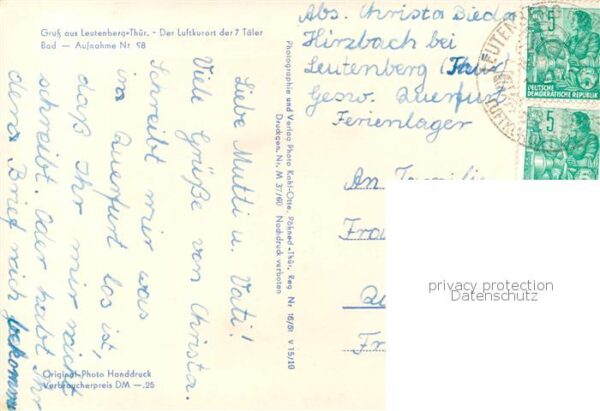 Gruß aus Leutenberg-Thür. - Der Luftkurort der 7 Täler
Bad — Aufnahme Nr 58
Liebe Mutti u. Vati!
Viele Grüße von Christa.
Schreibt mir was
in Querfurt los ist,
daß Ihr mir nicht
schreibt. Oder habt Ihr
denn Brief nich bekomm
Original-Photo Handdruck
Verbraucherpreis DM —.25
Photographie und Verlag Photo Kahl-Otte, Pößneck-Thür. Reg Nr 16/61 V 15/19
Druckgen. Nr. M 37/60 Nachdruck verboten
Abs. Christa Dieda
Hirzbach bei
Leutenberg (Thür)
Gesw. Querfurt
Ferienlager
An Familie
5
DEUTSCHE
DEMOKRATISCHE REPUBLIK
5
privacy protection
Datenschutz